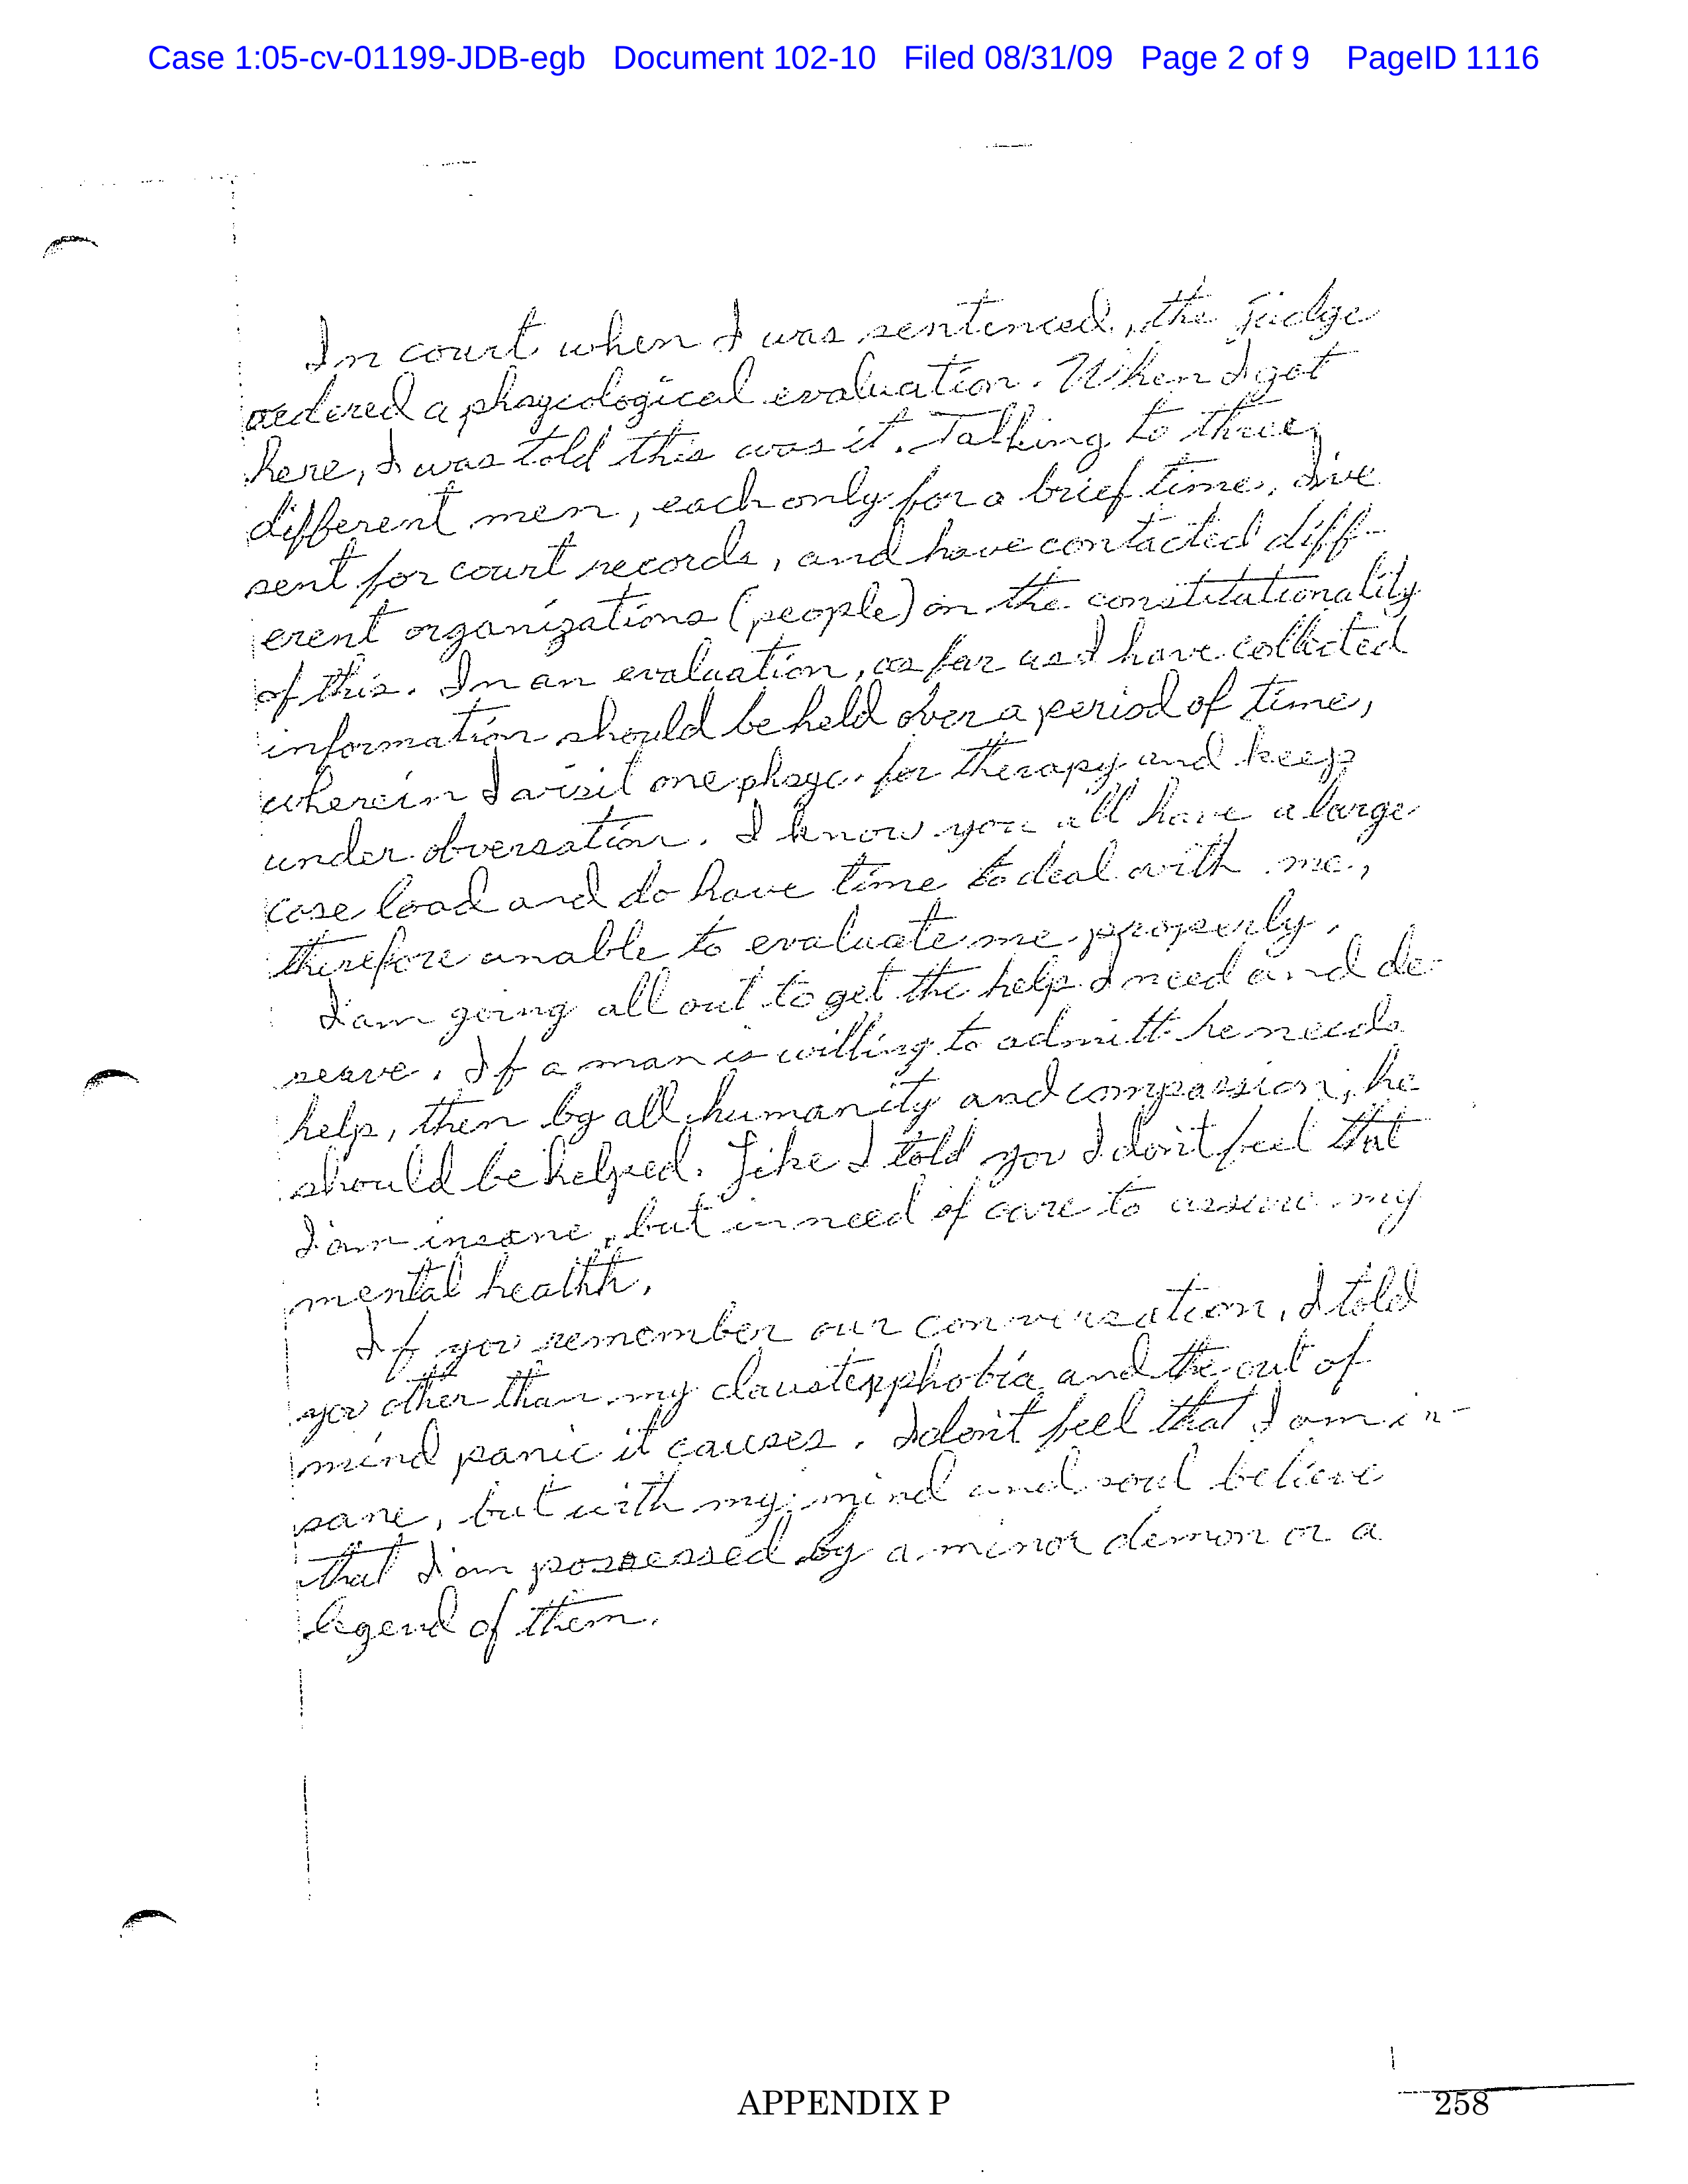 Case 1:05-cv-01199-JDB-egb   Document 102-10   Filed 08/31/09   Page 2 of 9    PageID 1116
In court when I was sentenced, the judge
ordered a phsycological evaluation. When I got
here, I was told this was it. Talking to three
different men, each only for a brief time, I've
sent for court records, and have contacted diff-
erent organizations (people) on the constitutionality
of this. In an evaluation, as far as I have collected
information should be held over a period of time,
wherein I visit one phsyc. for therapy and keep
under obversation. I know you all have a large
case load and do have time to deal with me,
therefore unable to evaluate me properly.
I am going all out to get the help I need and de-
serve. If a man is willing to admitt he needs
help, then by all humanity and compassion, he
should be helped. Like I told you I don't feel that
I am insane, but in need of care to assure my
mental health.
If you remember our conversation, I told
you other than my clausterphobia and the out of
mind panic it causes. I don't feel that I am in-
sane, but with my mind and soul believe
that I am possessed by a minor demon or a
legend of them.
APPENDIX P
258